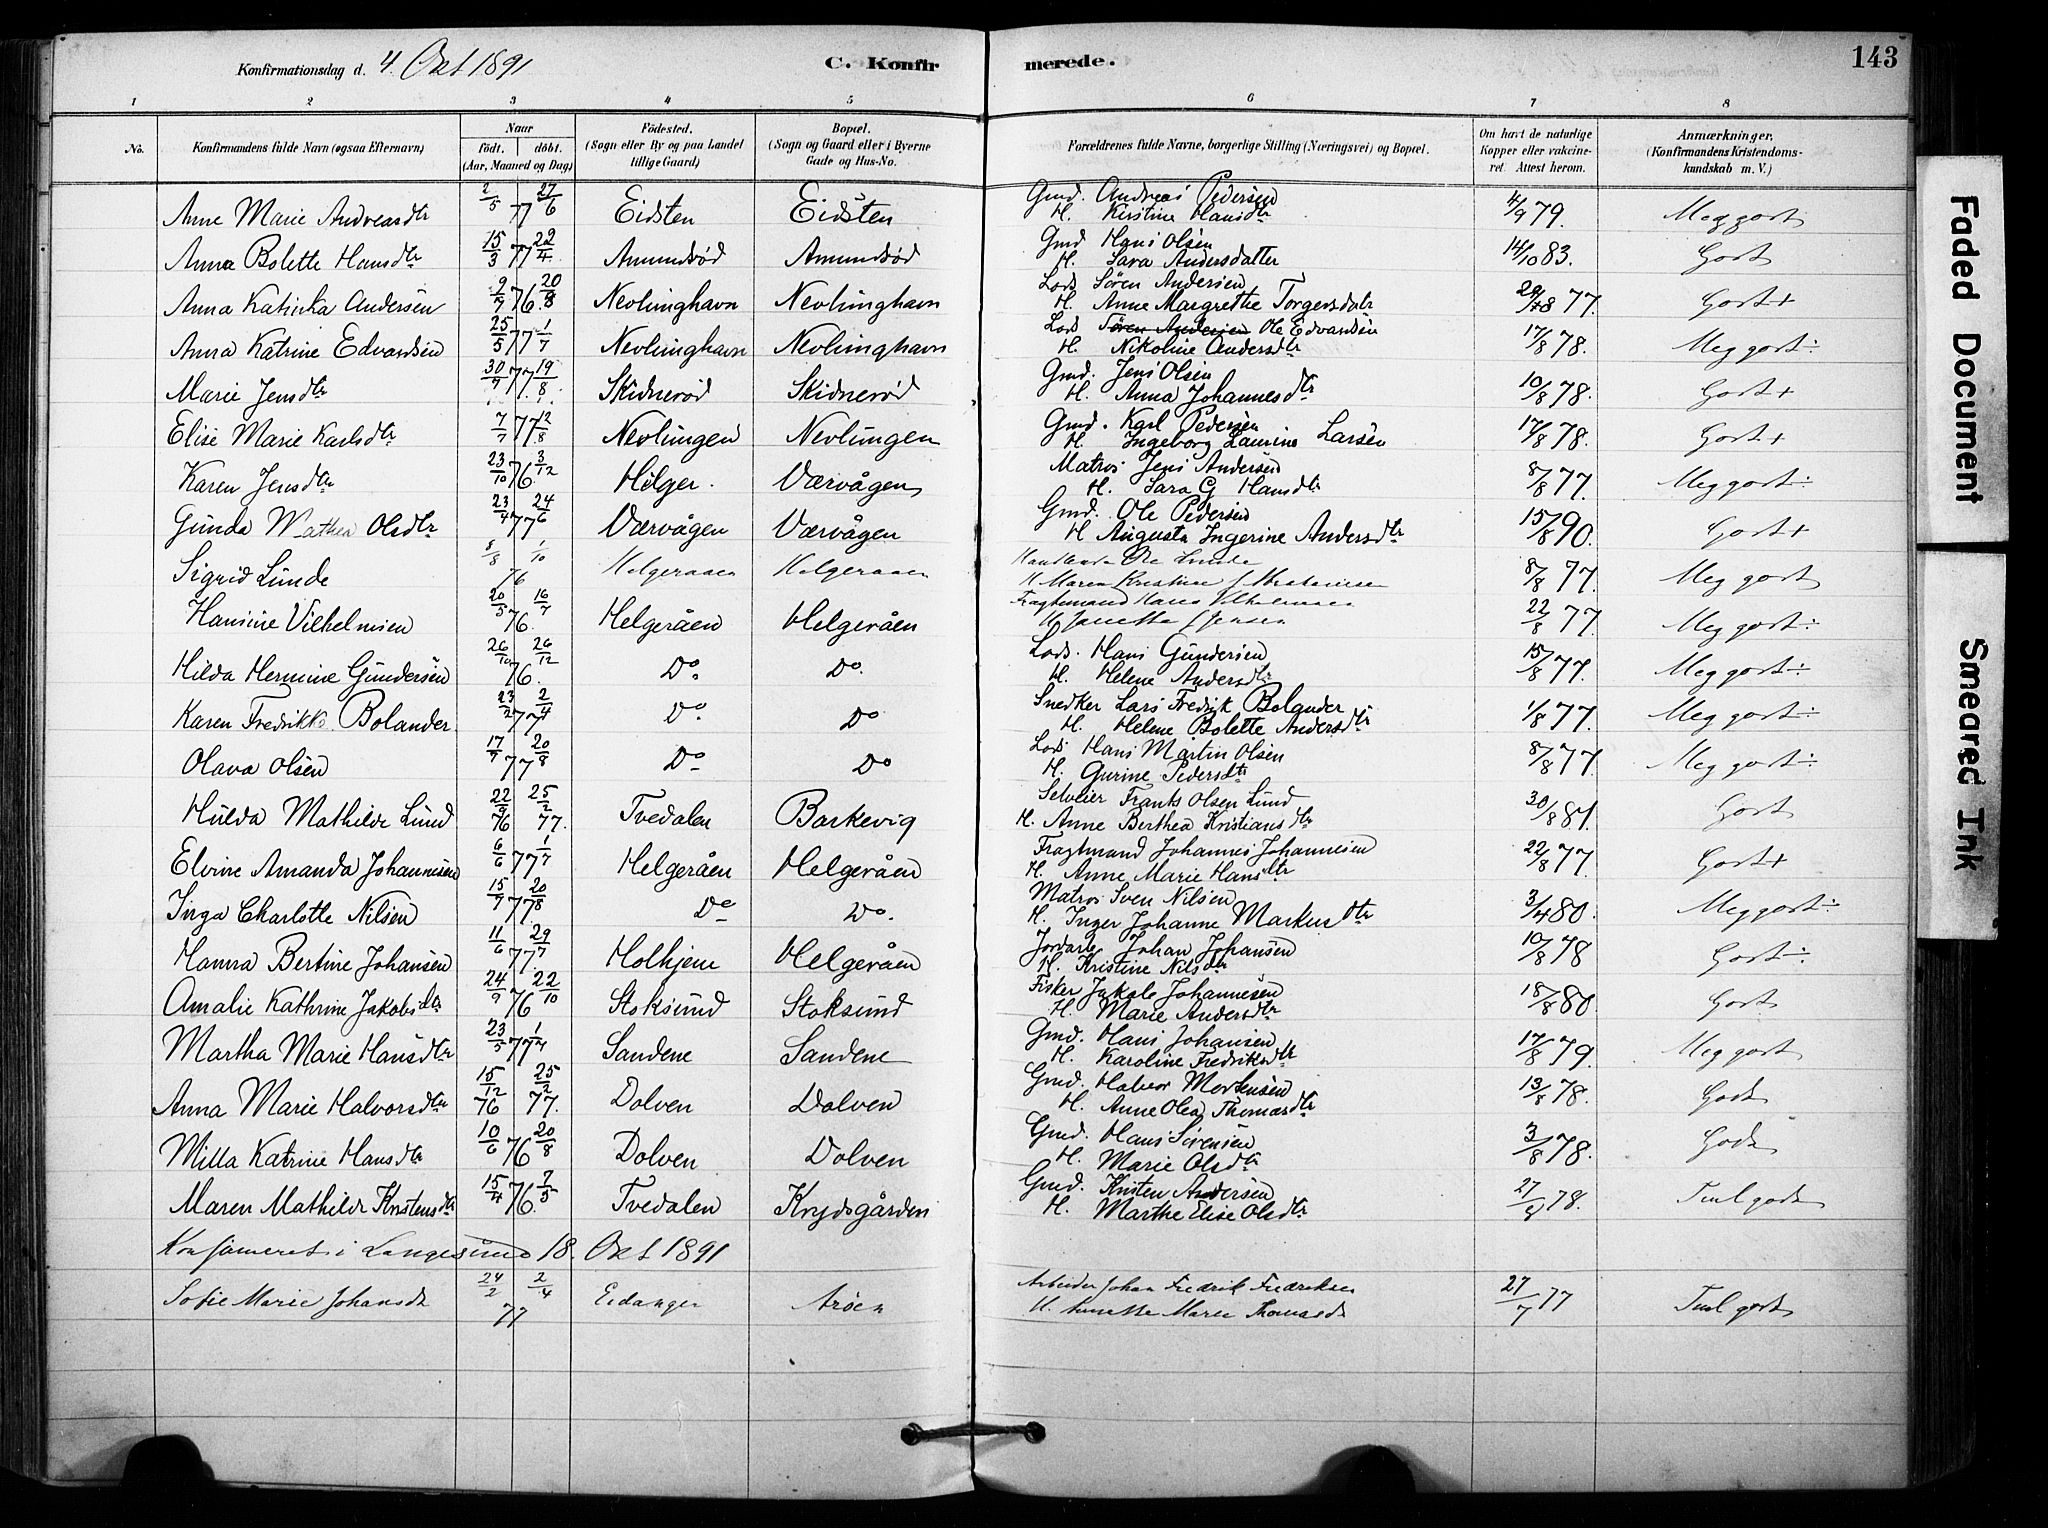 Konfirmationsdag d. 4. Okt 1891 C. Konfirmerede. 143
1 2 3 4 5 6 7 8
No. Konfirmandens fulde Navn (ogsaa Efternavn) Naar Födt. döbt. (Aar, Maaned og Dag) Födested. (Sogn eller By og paa Landet tillige Gaard) Bopæl. (Sogn og Gaard eller i Byerne Gade og Hus-No. Forældrenes fulde Navne, borgerlige Stilling (Næringsvei) og Bopæl. Om havt de naturlige Kopper eller vakcineret. Attest herom. Anmærkninger. (Konfirmandens Kristendomskundskab m. V.)
Anne Marie Andreasdtr 2/5 77 27/6 Eidsten Eidsten Gmd. Andreas Pedersen 4/9 79. Meg godt
H. Kirstine Hansdtr
Anna Bolette Hansdtr 15/3 77 22/4 Amundsød Amundsød Gmd Hans Olsen 14/10 83. Godt
H. Sara Andersdatter
Anna Katinka Andersen 9/7 76. 20/8 Nevlunghavn Nevlunghavn Lods Sören Andersen 77. Godt +
H. Anne Margrethe Torgersdatr
Anna Katrine Edvardsen 25/5 77 1/7 Nevlunghavn Nevlunghavn Lods Sören Andersen Ole Edvardsen 17/8 78. Meg godt ÷
H. Nikoline Andersdtr
Marie Jensdtr 30/7 77. 19/8 Skidnerød Skidnerød Gmd. Jens Olsen 10/8 78. Godt +
H. Anna Johannesdtr
Elise Marie Karlsdtr 7/7 77 12/8 Nevlungen Nevlungen Gmd. Karl Pedersen 17/8 78. Godt +
H. Ingeborg Laurine Larsen
Karen Jensdtr 23/10 76. 3/12 Hölger. Værvågen Matros Jens Andersen 8/8 77. Meg godt ÷
H. Sara G Hansdtr
Gunda Mathea Olsdtr 23/4 77 24/6 Værvågen Værvågen Gmd. Ole Pedersen 15/8 90. Godt +
H Augusta Ingerine Andersdtr
Sigrid Lunde 8/8 76 1/10 Helgeraaen Helgeraaen Handlende Ole Lunde 8/8 77. Meg godt
H Maren Kristine
Hansine Vilhelmsen 20/5 76. 16/7 Helgeråen Helgeråen Fragtemand Hans Vilhelmsen 22/8 77. Meg godt ÷
H. Janette Jensen
Hilda Hermine Gundersen 26/10 76. 26/12 Do. Do. Lods. Hans Gundersen 15/8 77. Meg godt ÷
H. Helene Andersdtr
Karen Fredrikke Bolander. 23/2 77 2/4 Do. Do Snedker Lars Fredrik Bolander 1/8 77. Meg godt ÷
H. Helene Bolette Andersdtr
Olava Olsen 17/7 77 20/8 Do Do Lods Hans Martin Olsen 8/8 77. Meg godt ÷
H. Gurine Pedersdtr
Hulda Mathilde Lund 22/9 76 25/2 77. Tvedalen Barkevig Selveier Frants Olsen Lund 30/8 81. Godt
H. Anne Berthea Kristiansdtr
Elvine Amanda Johannesen 6/6 77 1/7 Helgeråen Helgeråen Fragtmand Johannes Johannesen 22/8 77. Godt +
H. Anne Marie Hansdtr
Inga Charlotte Nilsen 15/7 77 20/8 Do Do. Matros Sven Nilsen 3/4 80. Meg godt ÷
H. Inger Johanne Markusdtr
Hanna Bertine Johansen 11/6 77. 29/7 Holhjem Helgeråen Jordarb. Johan Johansen 10/8 78 Godt ÷
H. Kristine Nilsdtr
Amalie Kathrine Jakobsdtr 24/9 76 22/10 Stoksund Stoksund Fisker Jakob Johannesen 18/8 80. Godt
H. Marie Andersdtr
Martha Marie Hansdtr 23/5 77 Sandene Sandene Gmd. Hans Johansen 17/8 79 Meg godt
H. Karoline Fredriksdtr
Anna Marie Halvorsdtr 15/12 76 25/2 77. Dolven Dolven Gmd. Halvor Mortensen 13/8 78. Godt
H. Anne Olea Thomasdtr
Milla Katrine Hansdtr 10/6 76 20/8 Dolven Dolven Gmd. Hans Sörensen 3/8 78. Godt
H. Marie Olsdtr
Maren Mathilde Kristensdtr 15/4 76. 7/5 Tvedalen Krydsgården Gmd. Kristen Andersen 27/8 78. Tæml godt
H. Marthe Elise Olsdtr
Konfirmeret i Langesund 18. Okt 1891
Sofie Marie Johansdr 24/2 77 2/4 Eidanger Arøen Arbeider Johan Fredrik Fredriksen 27/7 77 Tæml godt
H. Maren Thomasdr
Faded Document
Smeared Ink